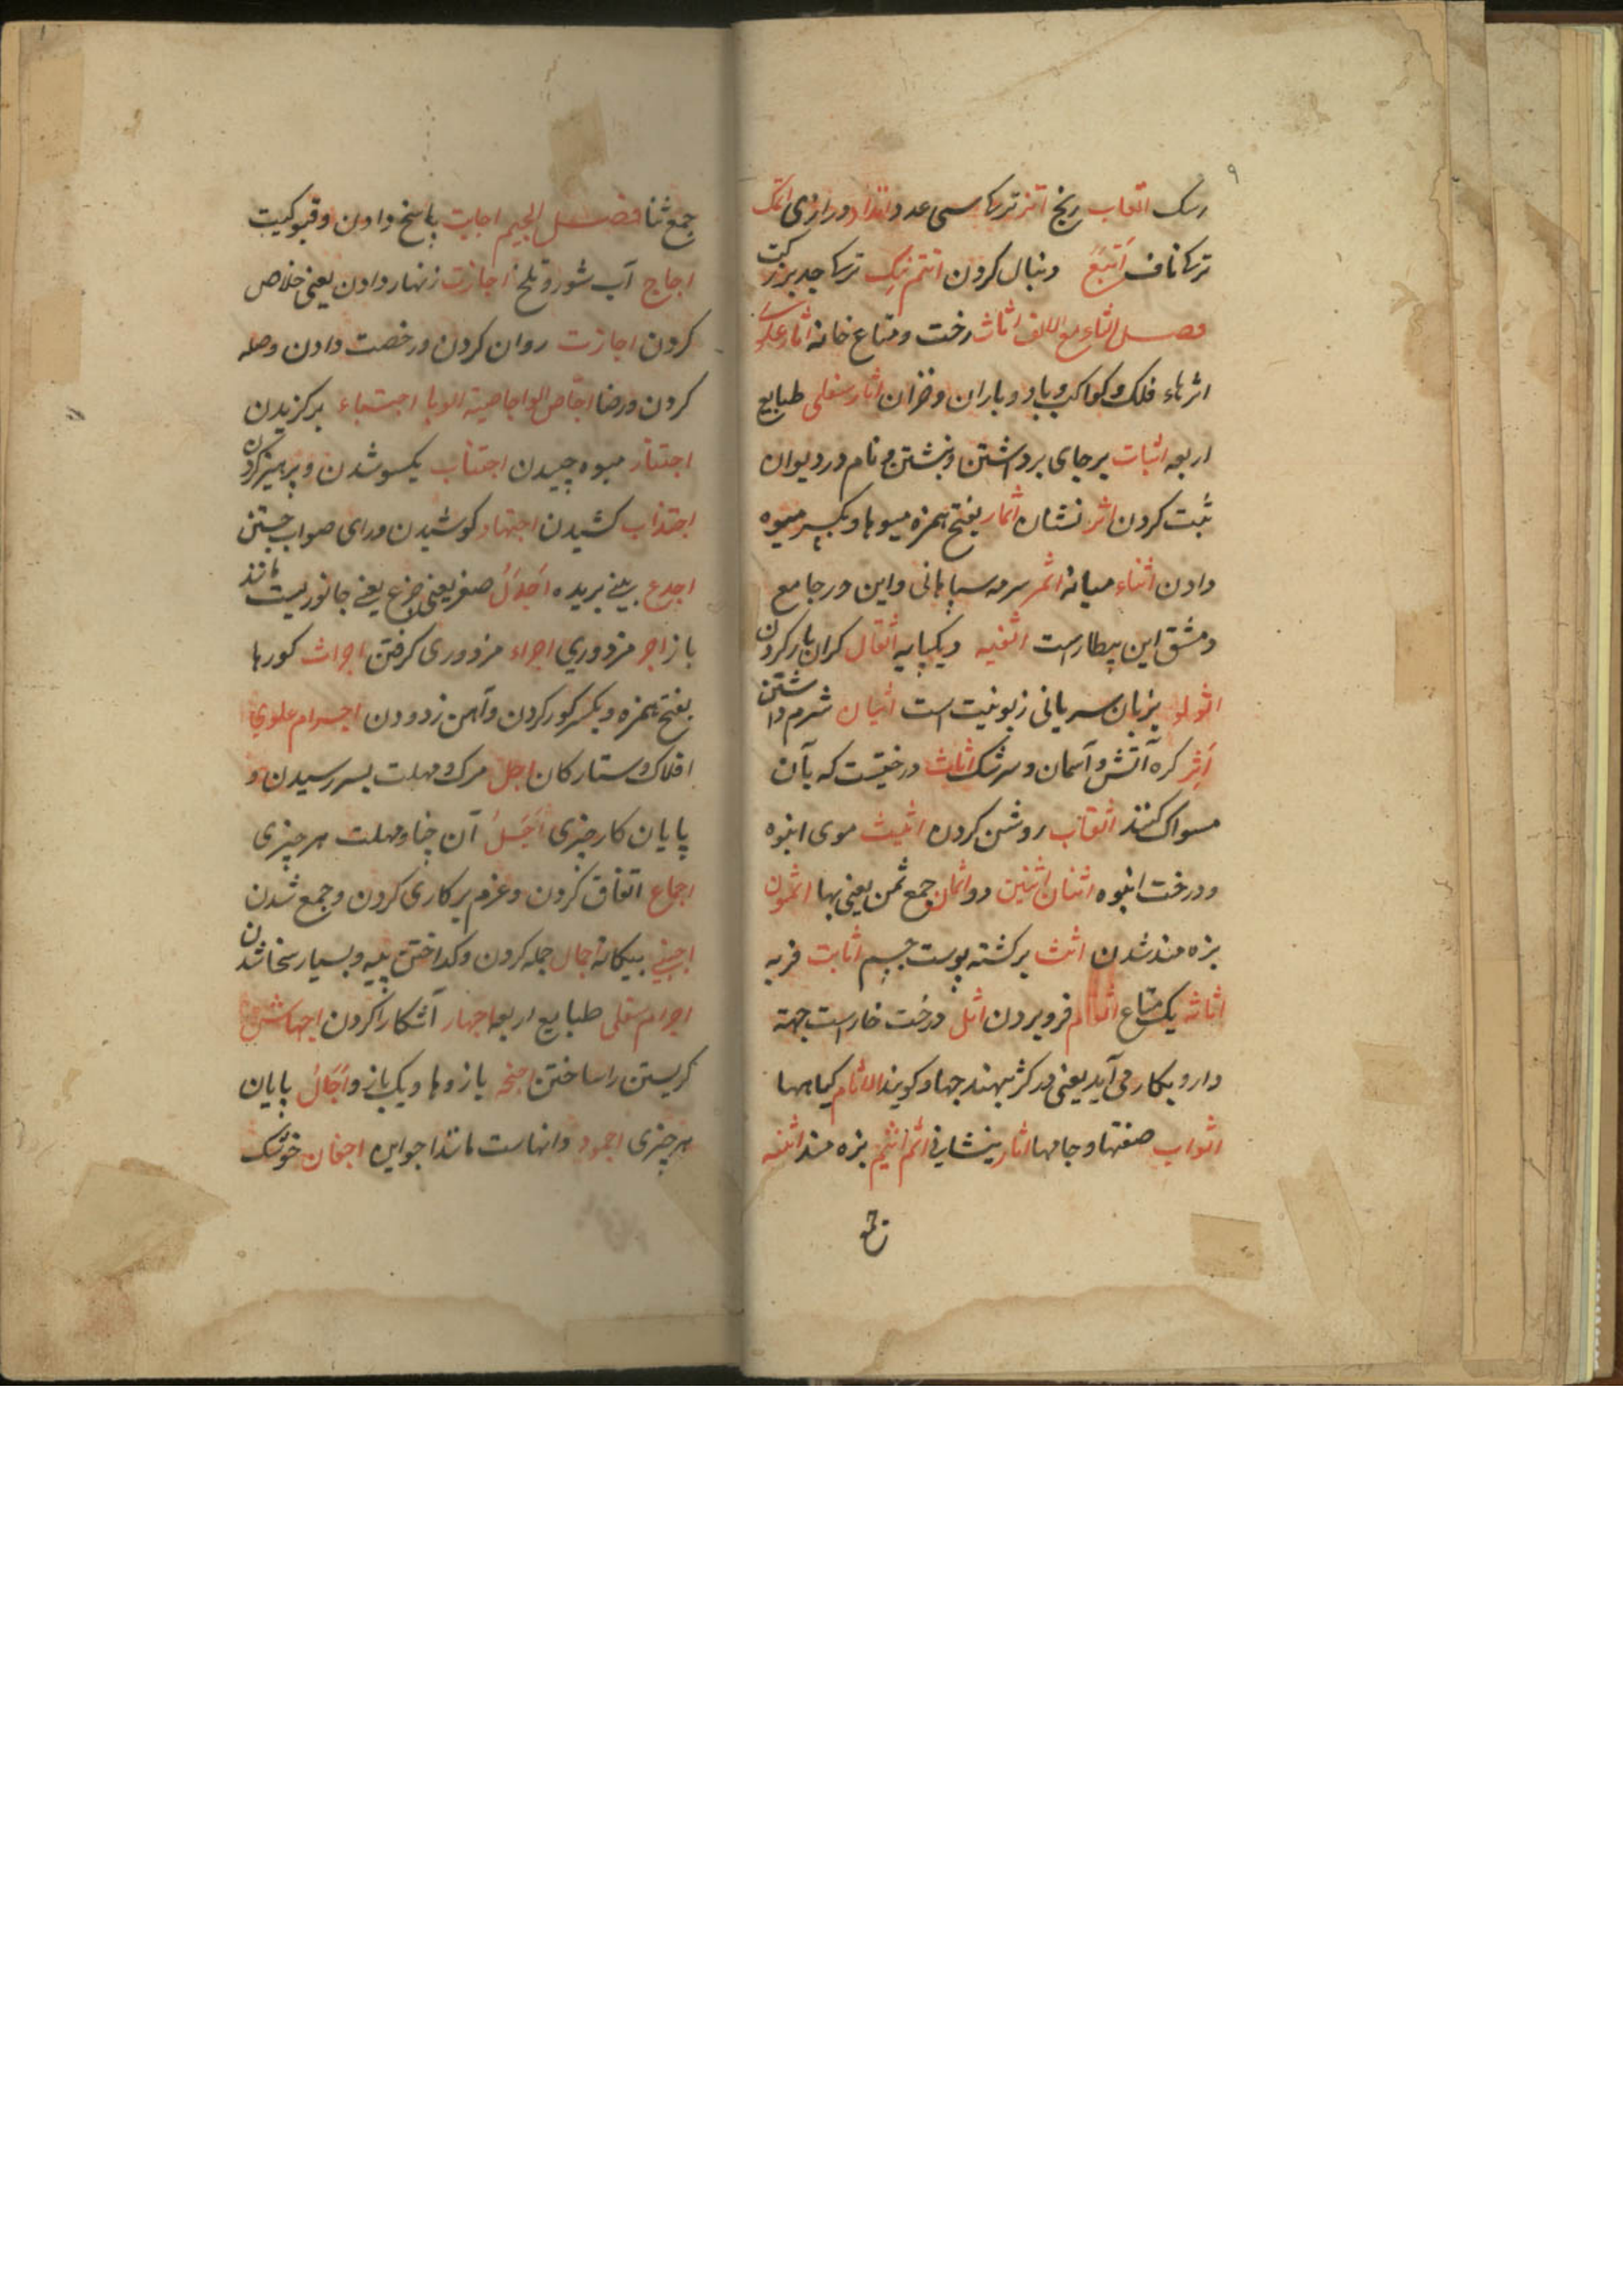 ۹
رسک اتعاب رنج اتز ترکی سی عدد درازی اتک
ترکی ناف اتبع دنبال کردن اتتم ترکی جد بزرکت
فصل الثاء مع الالف اثاث رخت و متاع خانه اثار علوی
اثرهاء فلک و کواکب و باد و باران و خزان اثار سفلی طبایع
اربعه اثبات برجای برداشتن و نبشتن و نام در دیوان
ثبت کردن اثر نشان اثمار بفتح همزه میوها و بکسر میوه
دادن اثناء میانه اثمر سرمه سپاهانی و این در جامع
دمشق ابن بیطارست اثفیه دیکپایه اثقال کران بار کردن
اثولو بزبان سریانی زبونیت است اثیان شرم داشتن
اثیر کره آتش و آسمان و سرشک اثاث درختیست که بآن
مسواک کنند اثقاب روشن کردن اثیث موی انبوه
و درخت انبوه اثنان اثنین دو اثمان جمع ثمن یعنی بها اثمون
بزه مند شدن اثث برکشته پوست جسم اثابت فربه
اثاثه یک متاع اثام فرو بردن اثل درخت خارست جهة
دارو بکار می آید یعنی در کثر نهند جهاد کویند الاثام کیاهها
اثواب صفتها و جامها اثار بنشانی اثم اثیم بزه مند اثنیه
جمع
جمع ثنا فصل الجیم اجابت پاسخ دادن و قبولیت
اجاج آب شور و تلخ اجازت زنهار دادن یعنی خلاص
کردن اجازت روان کردن و رخصت دادن و صله
کردن و رضا اجاص الواجاصیة الوبا اجتباء برکزیدن
اجتناء میوه چیدن اجتناب یکسو شدن و پرهیز کردن
اجتذاب کشیدن اجتهاد کوشیدن و رای صواب جستن
اجدع بینی بریده اجدل صقر یعنی چرغ یعنی جانوریست مانند
باز اجر مزدوری اجراء مزدوری کرفتن اجداث کورها
بفتح همزه و بکسر کور کردن و آهن زدودن اجرام علوی
افلاک و ستارکان اجل مرک و مهلت بسر رسیدن و
پایان کار چیزی اجل آن جا و مهلت هر چیزی
اجماع اتفاق کردن و عزم بر کاری کردن و جمع شدن
اجنبی بیکانه اجمال جمله کردن و کداختن پیه و بسیار شدن
اجرام سفلی طبایع اربعه اجهار آشکارا کردن اجهاش
کریستن را ساختن اجنحه بازوها و یک بازو آجال پایان
هر چیزی اجود دانهاست مانند اجواین اجفان خوشک